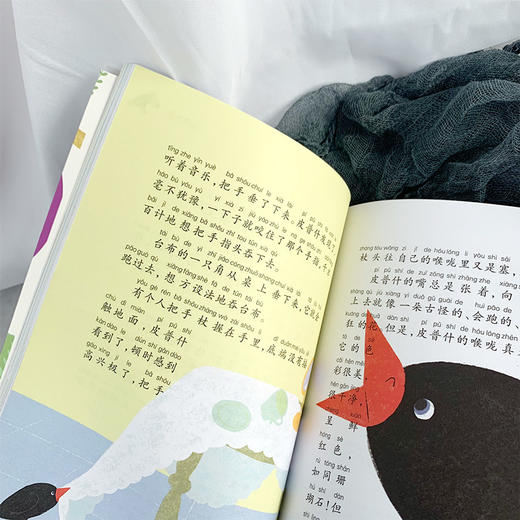 tīng zhe yīn yuè bǎ shǒu chuí le xià lái pí pǔ shí
听着音乐，把手垂了下来，皮普什
háo bù yóu yù yí xià zi jiù yǎo zhù le
毫不犹豫，一下子就咬住了那个手指，千方
bǎi jì de xiǎng bǎ shǒu zhǐ tou tūn xià qù
百计地想把手指头吞下去。
tái bù de yì jiǎo cóng zhuō shang chuí xià lái
台布的一巧角从桌上垂下来，它就会
pǎo guò qù xiǎng fāng shè fǎ de tūn tái bù
跑过去，想方设法地吞台布。
yǒu gè rén bǎ shǒu zhàng wò zài shǒu li
有个人把手杖握在手里，底端没有接
chù dì miàn pí pǔ shí
触地面，皮普什
kàn dào le dùn shí gǎn dào
看到了，顿时感到
gāo xìng jí le bǎ shǒu
高兴极了，把手
zhàng tóu wǎng zì jǐ de hóu lóng li yòu shì sāi
杖头往自己的喉咙里又是塞，
pí pǔ shí de zuǐ zǒng shì zhāng zhe xiàng
皮普什的嘴总是张着，向
shàng qù jiù xiàng yì duǒ gǔ guài de huì pǎo de
上去就像一朵古怪的、会跑的、
kuáng de huā dàn shì pí pǔ shí de hóu lóng zhēn
狂的花。但是，皮普什的喉咙真
tā de sè
它的色
cǎi hěn měi
彩很美，
hěn gān jìng
很干净，
chéng xiān
呈鲜
hóng sè
红色，
rú tóng shān
如同珊
hú shí dàn
瑚石！但